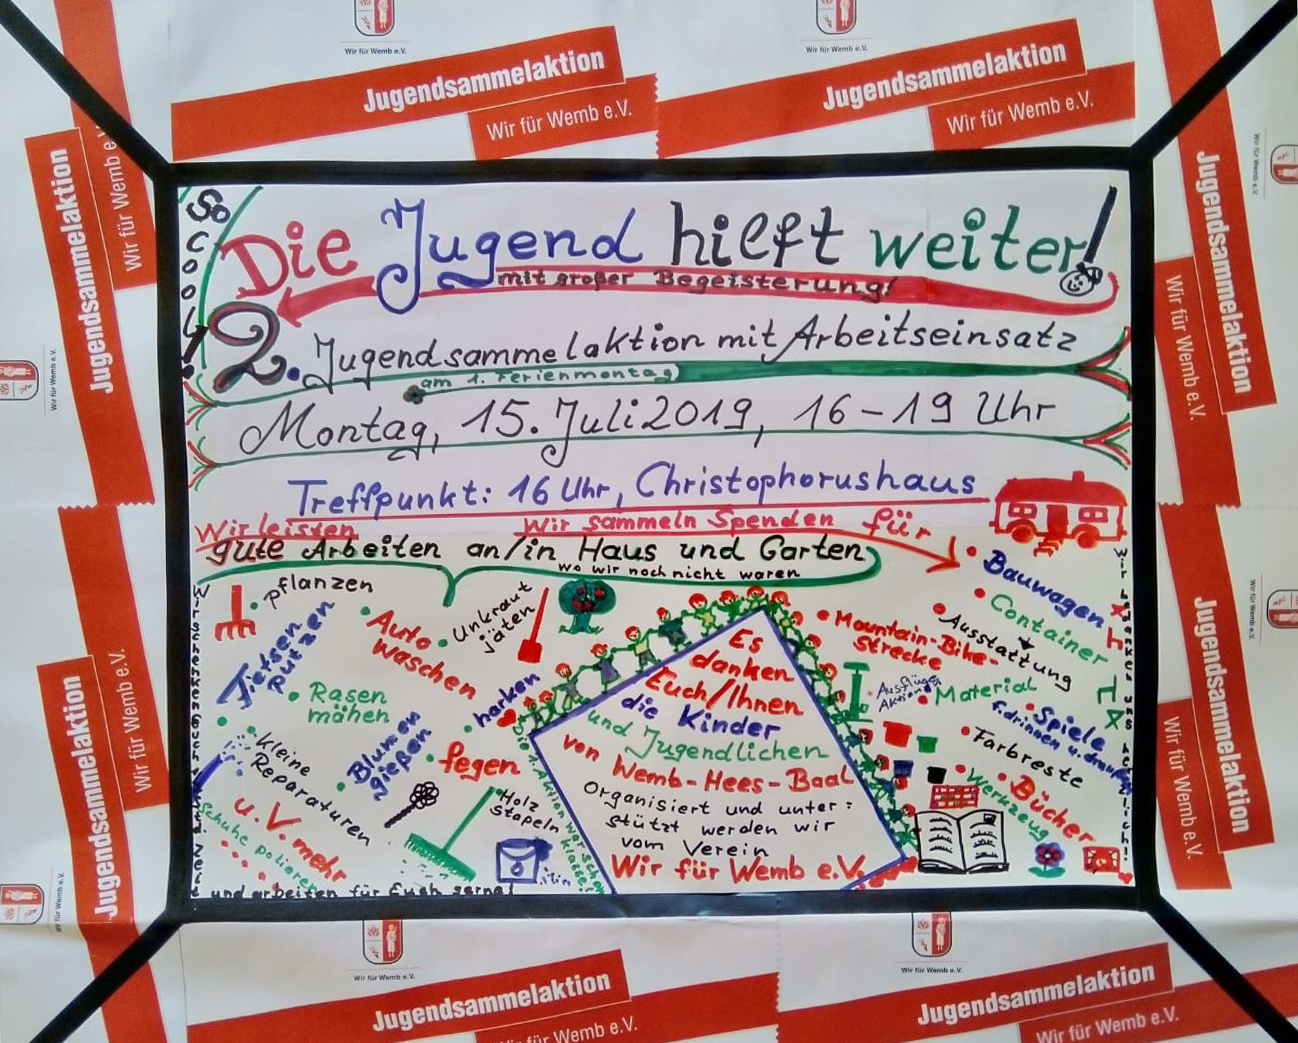 Wir für Wemb e.V.
Jugendsammelaktion
Wir für Wemb e.V.
Wir für Wemb e.V.
Jugendsammelaktion
Wir für Wemb e.V.
Jugendsammelaktion
Wir für Wemb e.V.
Jugendsammelaktion
Wir für Wemb e.V.
Wir für Wemb e.V.
Wir für Wemb e.V.
So cool!
Die Jugend hilft weiter!
mit großer Begeisterung!
2. Jugendsammelaktion mit Arbeitseinsatz
am 1. Ferienmontag
Montag, 15. Juli 2019, 16-19 Uhr
Treffpunkt: 16 Uhr, Christophorushaus
Wir leisten
gute Arbeiten an/in Haus und Garten
wo wir noch nicht waren
pflanzen
Unkraut
jäten
Auto
waschen
putzen
Rasen
mähen
harken
Blumen
gießen
kleine
Reparaturen
fegen
Holz
stapeln
Schuhe polieren
u.v. mehr
und arbeiten für Euch gerne!
Wir sammeln Spenden für
Bauwagen
Container
Ausstattung
Mountain-Bike-
Strecke
Ausflüge
Aktionen
Material
Spiele
f. drinnen u. draußen
Farbreste
Werkzeug
Bücher
Wir bedanken uns herzlich!
Es
danken
Euch/Ihnen
die Kinder
und Jugendlichen
von Wemb-Hees-Baal
Organisiert und unter=
stützt werden wir
vom Verein
Wir für Wemb e.V.
Die 1. Aktion war schon klasse!
Jugendsammelaktion
Wir für Wemb e.V.
Wir für Wemb e.V.
Jugendsammelaktion
Wir für Wemb e.V.
Wir für Wemb e.V.
Jugendsammelaktion
Wir für Wemb e.V.
Wir für Wemb e.V.
Wir für Wemb e.V.
Jugendsammelaktion
Wir für Wemb e.V.
Wir für Wemb e.V.
Jugendsammelaktion
Wir für Wemb e.V.